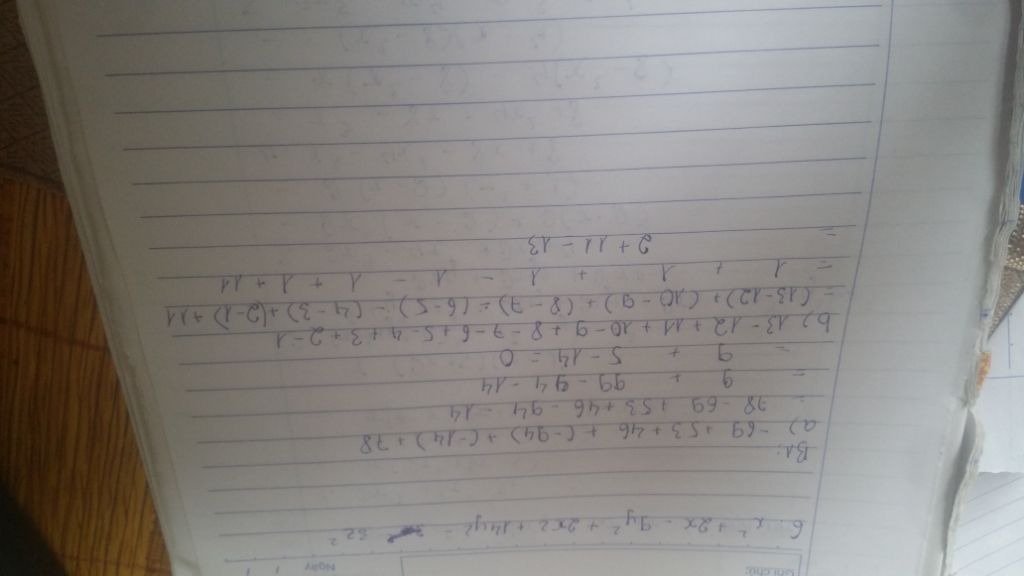 Ghi chú:
Ngày / /
6 x² + 2x - 9y² + 2x² + 14y² - 32²
B1:
a) -69 + 53 + 46 + (-94) + (-14) + 78
= 78 - 69 + 53 + 46 - 94 - 14
= 9 + 99 - 94 - 14
= 9 + 5 - 14 = 0
b) 13 - 12 + 11 + 10 - 9 + 8 - 7 - 6 + 5 - 4 + 3 + 2 - 1
= (13-12) + (10-9) + (8-7) = (6-5) - (4-3) + (2-1) + 11
= 1 + 1 + 1 - 1 - 1 + 1 + 11
= 2 + 11 - 13